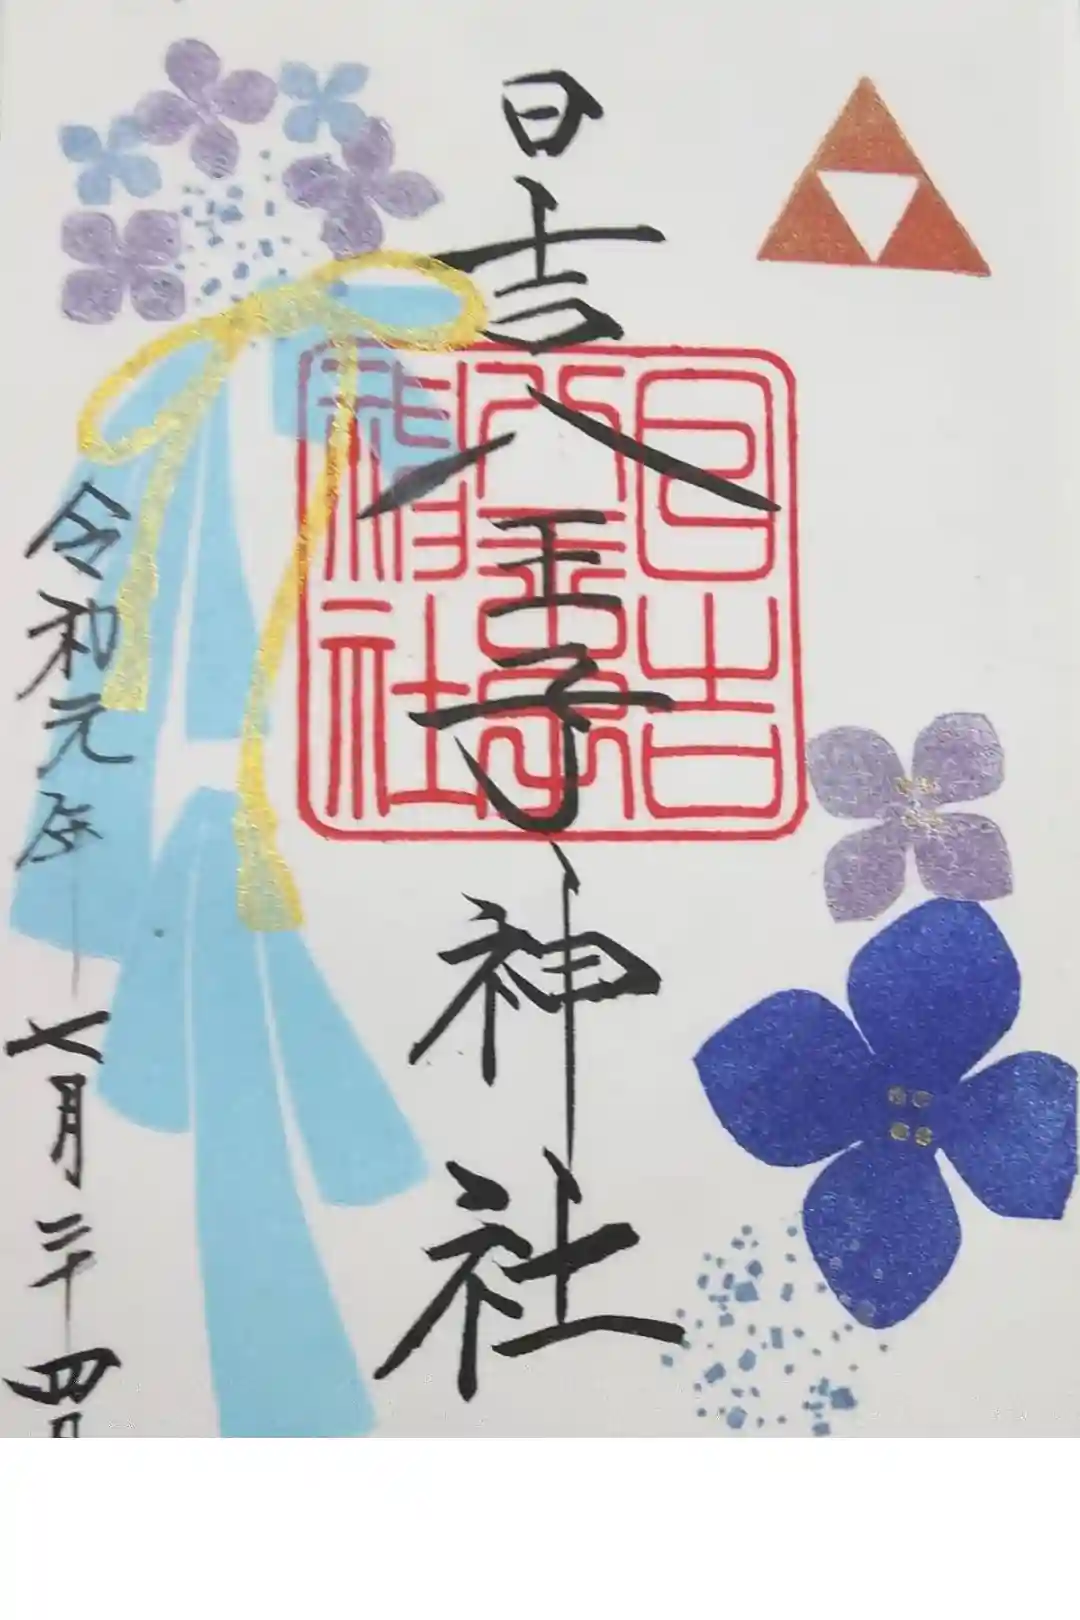 日吉八王子神社
日吉
八王子
神社
令和元年七月二十四日